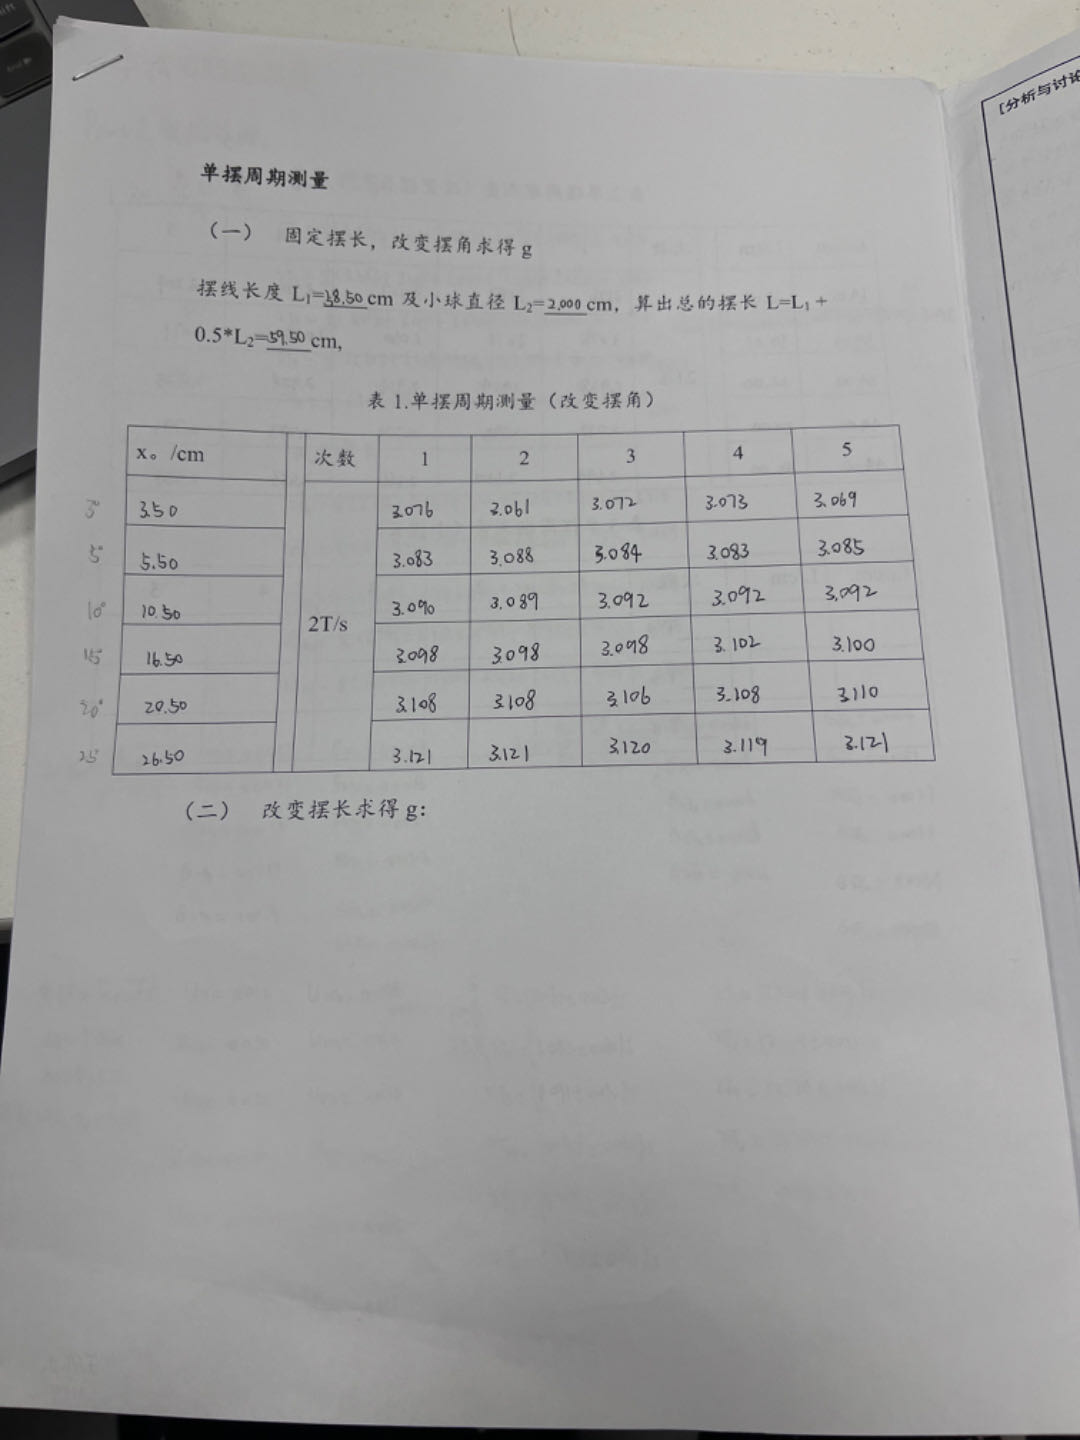 [分析与讨论
单摆周期测量
（一） 固定摆长，改变摆角求得 g
摆线长度 L₁=58.50 cm 及小球直径 L₂=2.000 cm，算出总的摆长 L=L₁ +
0.5*L₂=59.50 cm,
表 1.单摆周期测量（改变摆角）
x。/cm 次数 1 2 3 4 5
3° 3.50 3.076 3.061 3.072 3.073 3.069
5° 5.50 3.083 3.088 3.084 3.083 3.085
10° 10.50 3.090 3.089 3.092 3.092 3.092
2T/s
15° 16.50 3.098 3.098 3.098 3.102 3.100
20° 20.50 3.108 3.108 3.106 3.108 3.110
25° 26.50 3.121 3.121 3.120 3.119 3.121
（二） 改变摆长求得 g：